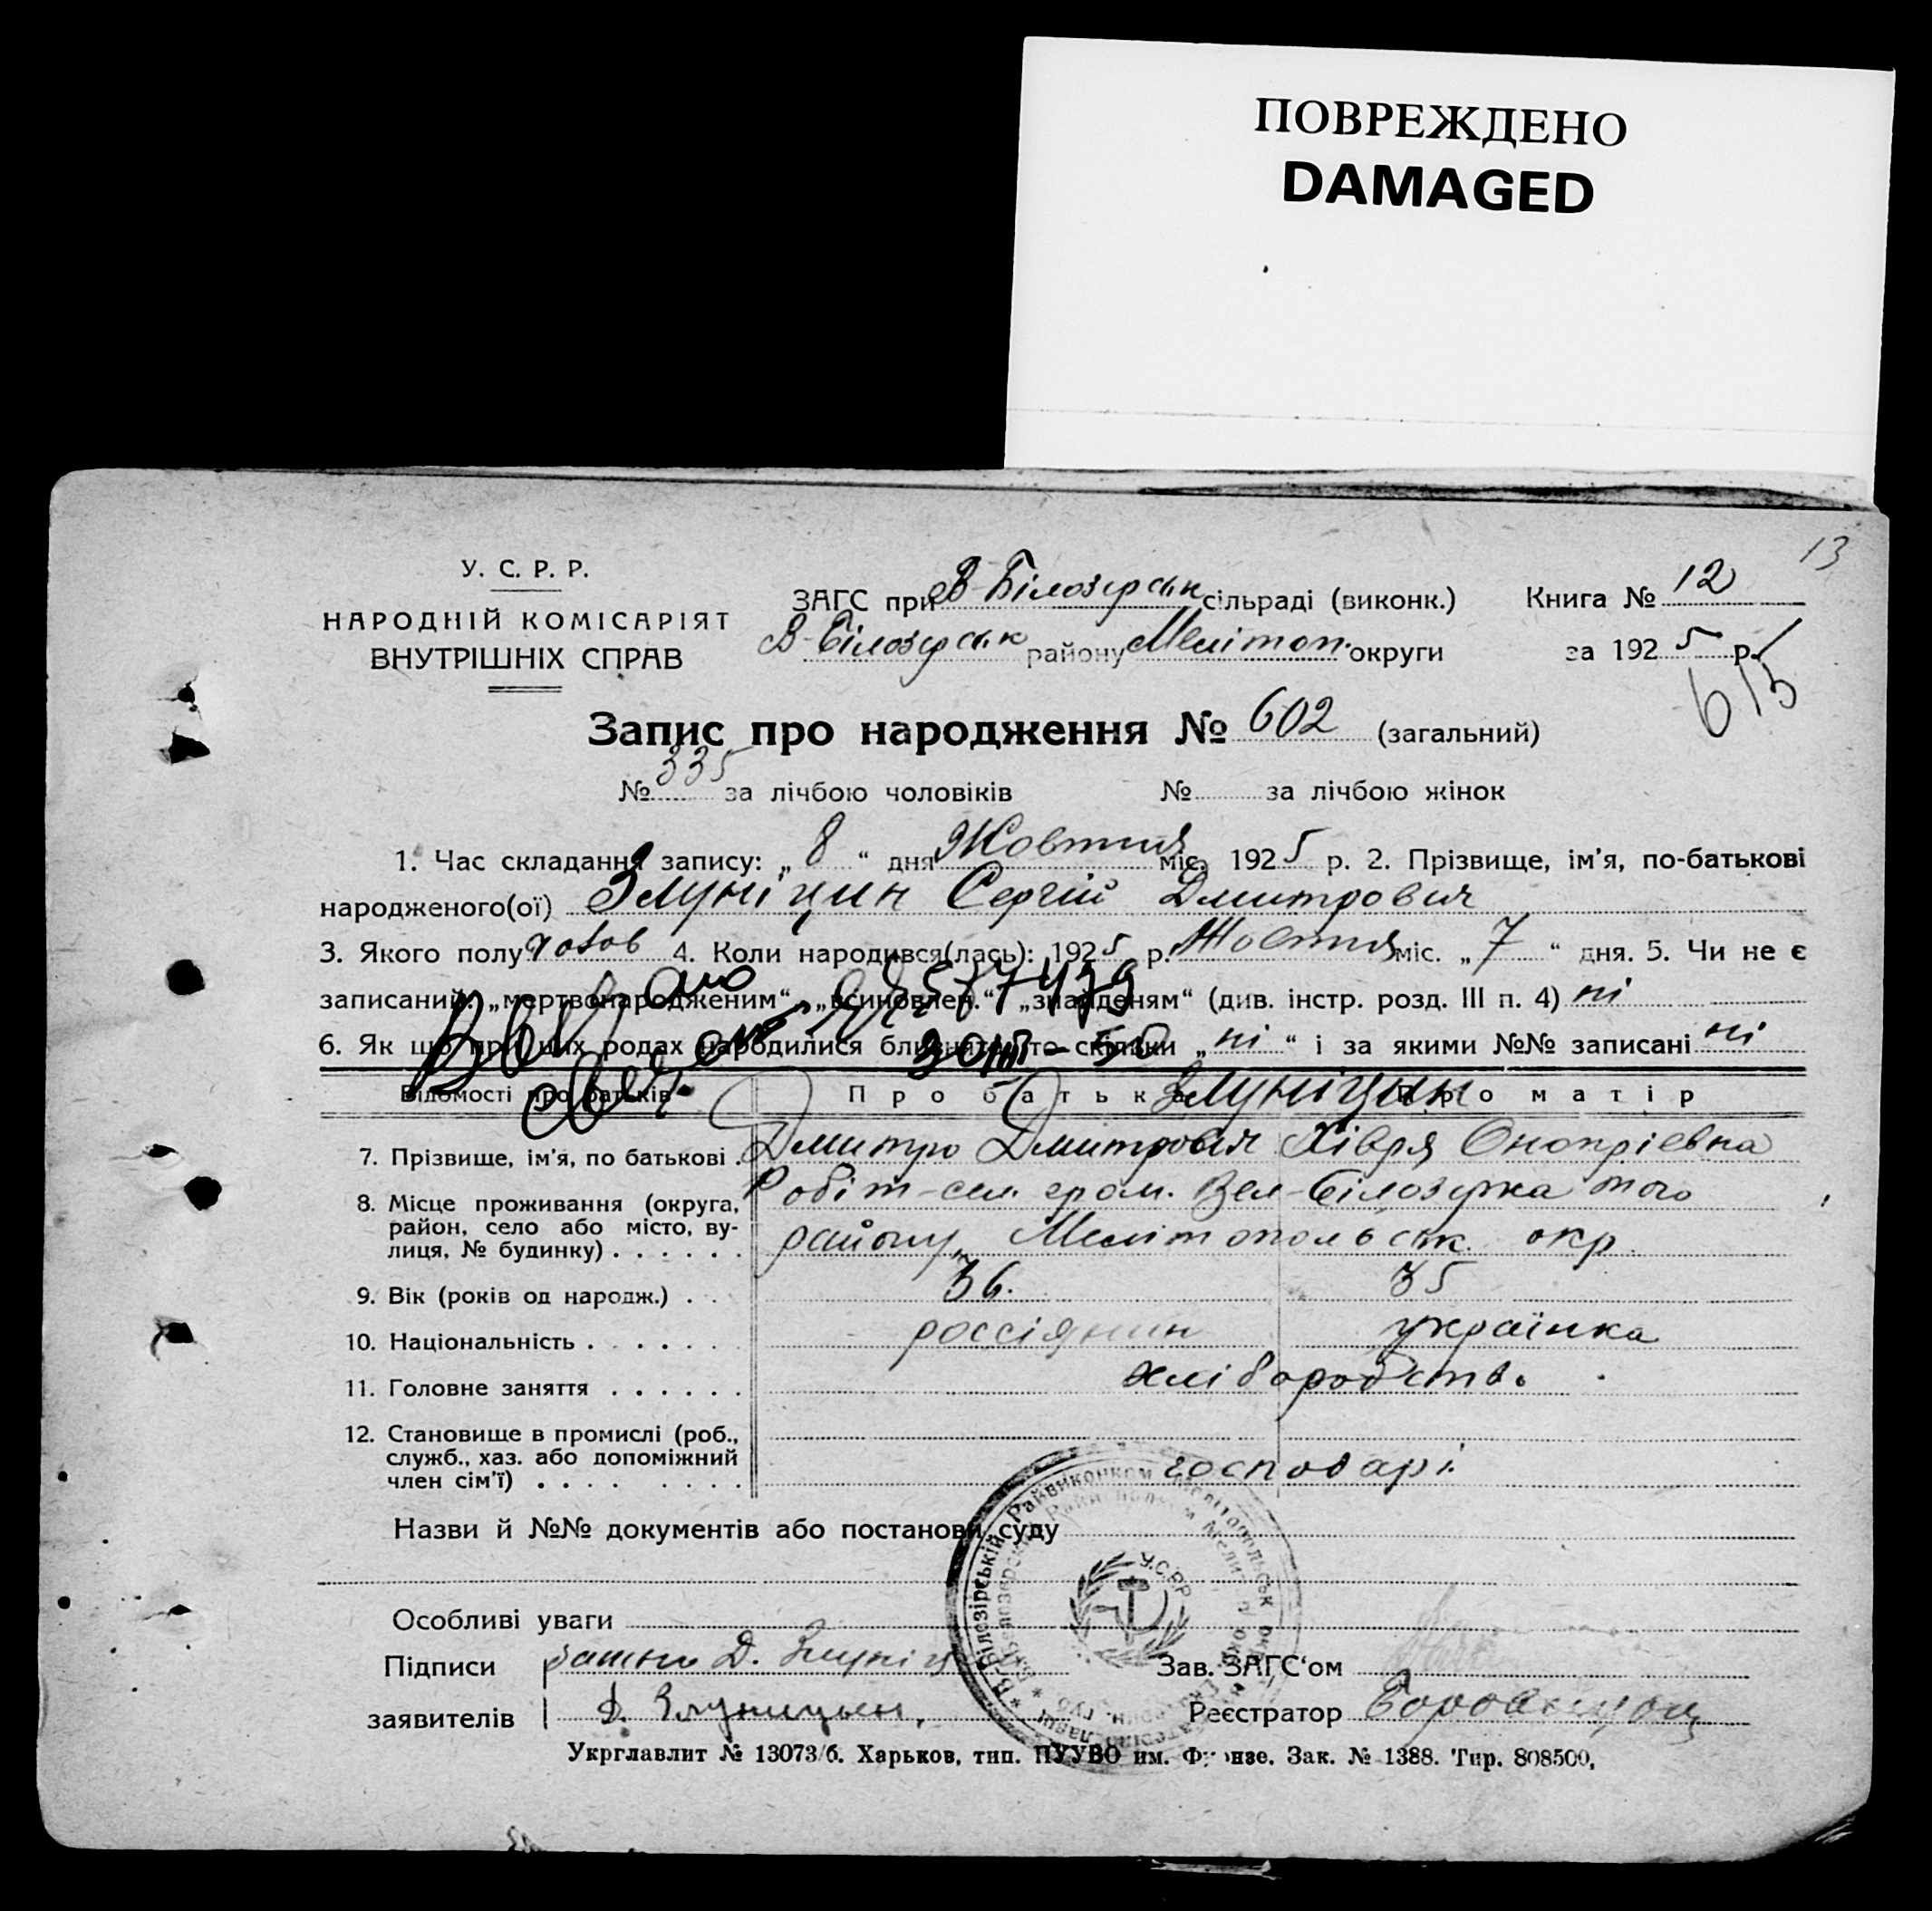 ПОВРЕЖДЕНО
DAMAGED
13
У. С. Р. Р.
НАРОДНІЙ КОМІСАРІЯТ
ВНУТРІШНІХ СПРАВ
ЗАГС при В-Білозерськ сільраді (виконк.) Книга № 12
В-Білозерськ району Меліт оп. округи за 1925 р.
615
Запис про народження № 602 (загальний)
№ 335 за лічбою чоловіків № за лічбою жінок
1. Час складання запису: „ 8 “ дня Жовтня міс. 1925 р. 2. Прізвище, ім’я, по-батькові
народженого(ої) Злуніцин Сергій Дмитрович
3. Якого полу чолов 4. Коли народився(лась): 1925 р. Жовтня міс. „ 7 “ дня. 5. Чи не є
записаний: „мертвонародженим“, „всиновлен.“ „знайденям“ (див. інстр. розд. III п. 4) ні
6. Як що при цих родах народилися близнята, то скільки „ ні “ і за якими №№ записані ні
Відомості про батьків Про батька Злуніцин Про матір
7. Прізвище, ім’я, по батькові . Дмитро Дмитрович Хівря Онопріевна
8. Місце проживання (округа, Робіт-сел. гром. Вел-Білозерка того
район, село або місто, ву-
лиця, № будинку) . . . . . . району, Мелітопольськ. окр.
9. Вік (років од народж.) . . 36. 35
10. Національність . . . . . . россіянин українка
11. Головне заняття . . . . . . хліборобств.
12. Становище в промислі (роб.,
служб., хаз. або допоміжний
член сім’ї) . . . . . . . . господарі
Назви й №№ документів або постанови суду
У.С.Р.Р.
Особливі уваги
Підписи батько Д. Злуніцин Зав. ЗАГС‘ом
заявителів Д. Злуницын. Реєстратор
Укрглавлит № 13073/6. Харьков, тип. ПУУВО им. Фрунзе. Зак. № 1388. Тир. 808500,